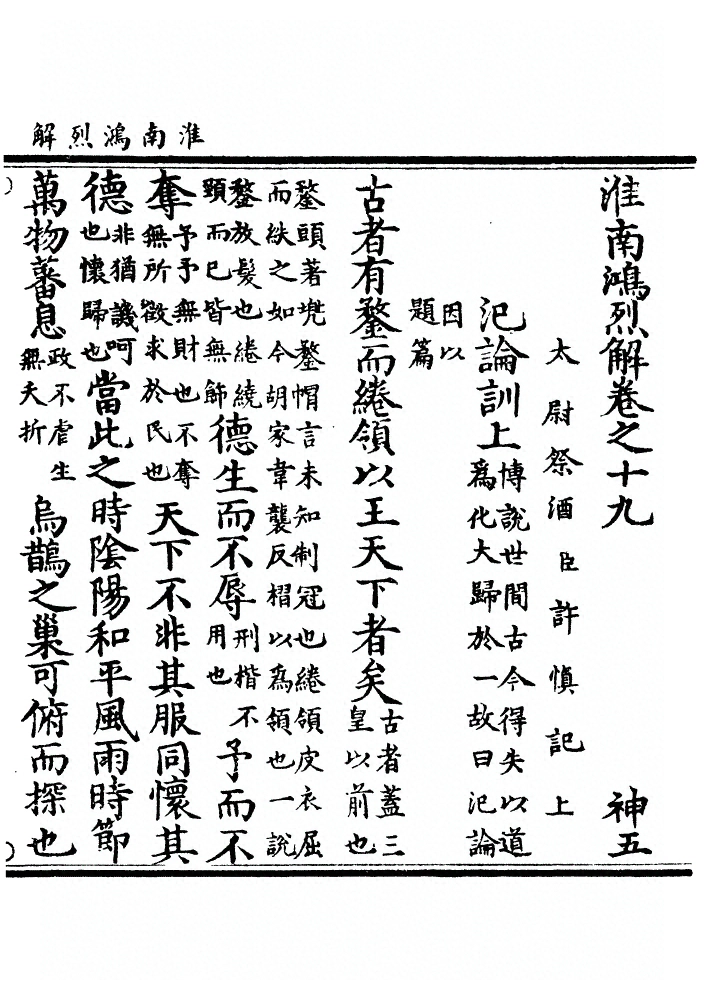 淮南鴻烈解
淮南鴻烈解卷之十九 神五
太尉祭酒臣許慎記上
氾論訓上博說世間古今得失以道爲化大歸於一故曰氾論
因以題篇
古者有鍪而綣領以王天下者矣古者蓋三皇以前也
鍪頭著兜鍪帽言未知制冠也綣領皮衣屈而紩之如今胡家韋襲反褶以爲領也一說
鍪放髮也綣繞頸而已皆無飾德生而不辱刑楷不用也予而不
奪予予無財也不奪無所徵求於民也天下不非其服同懷其
德非猶譏呵也懷歸也當此之時陰陽和平風雨時節
萬物蕃息政不虐生無夭折烏鵲之巢可俯而探也